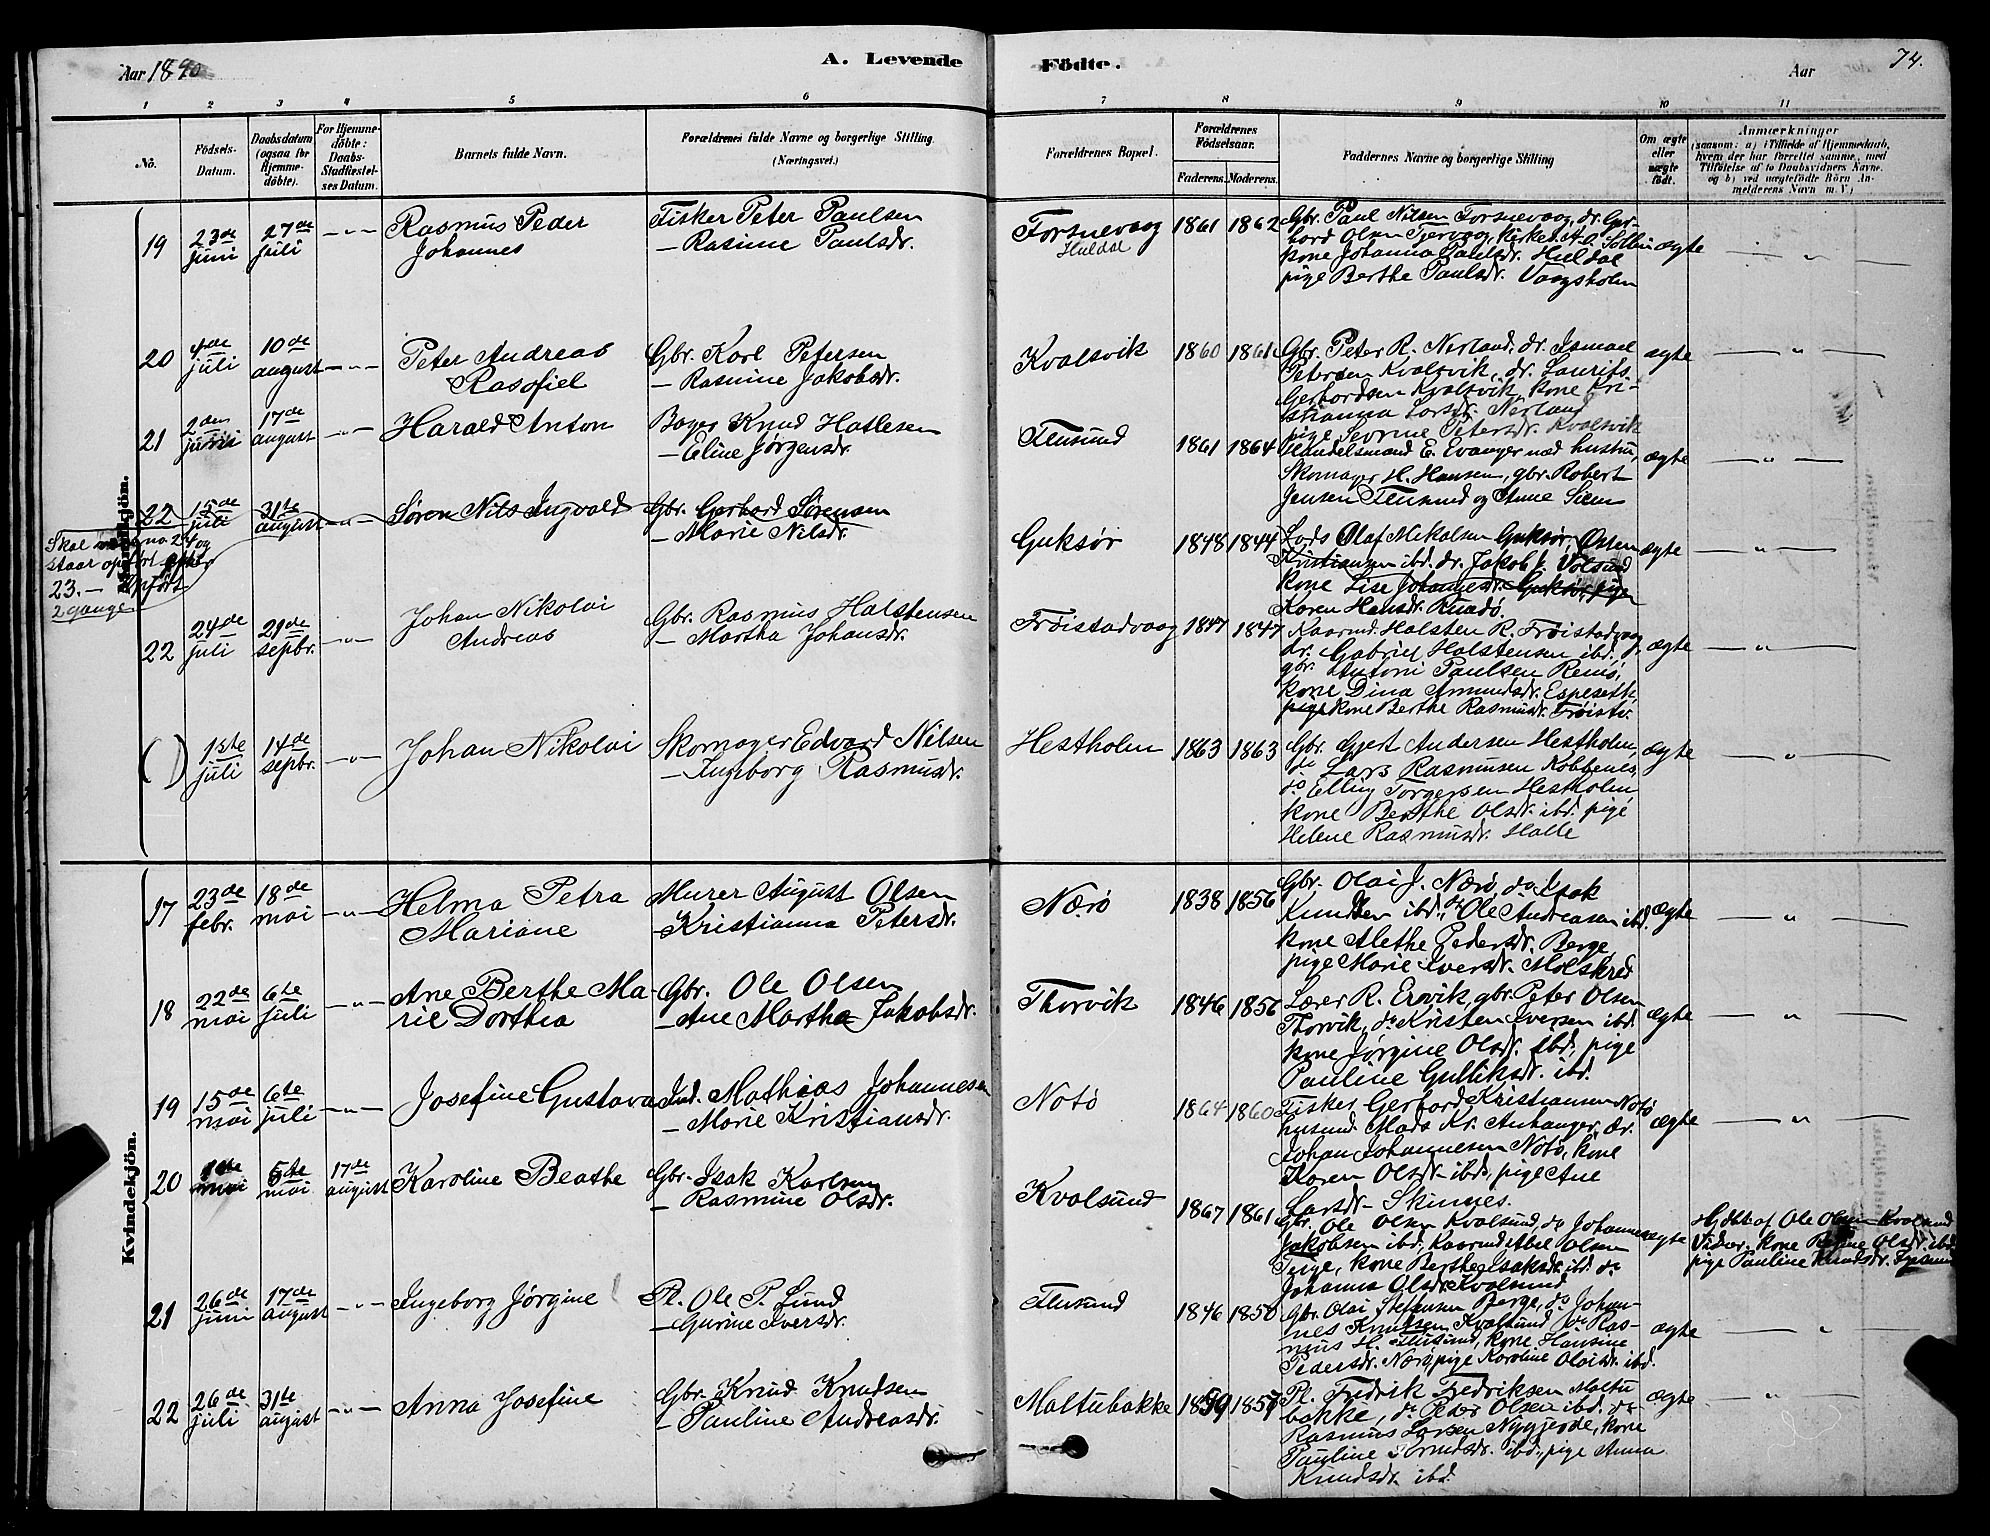 Aar 1890
A. Levende
Födte.
Aar
74.
1 2 3 4 5 6 7 8 9 10 11
No.
Födsels-Datum.
Daabsdatum (ogsaa for Hjemme-döbte).
For Hjemme-döbte: Daabs-Stadfæstel-ses Datum.
Barnets fulde Navn.
Forældrenes fulde Navne og borgerlige Stilling (Næringsvei.)
Forældrenes Bopæl.
Forældrenes Födselsaar.
Faderens. Moderens.
Faddernes Navne og borgerlige Stilling
Om ægte eller uægte födt.
Anmærkninger
(saasom: a) i Tilfælde af Hjemmedaab,
hvem der har forrettet samme, med
Tilföielse af to Daabsvidners Navne.
og b) ved uægtefödte Börn An-
melderens Navn m. V.)
Mandkjön.
19 23de juni 27de juli - " - Rasmus Peder Johannes
Fisker Peter Paulsen
- Rasine Paulsdr.
Torsnevaag
Huldal
1861 1862
Gbr. Paul Nilsen Torsnevaag, dr. Ger-
hard Olsen Tjervaag, Kirkes.
kone Johanna Paulsdr. Huldal
pige Berthe Paulsdr. Vaagsholm
ægte
20 4de juli 10de august - " - Peter Andreas Rasofiel
Gbr. Karl Petersen
- Rasmine Jakobsdr.
Kvalsvik
1860 1861
Gbr. Peter R. Nerland, dr. Ismael
Petersen Kvalsvik, dr. Laurits
Gerhardsen Kvalsvik, kone Kri-
stianna Larsdr. Nerland
pige Sevrine Petersdr. Kvalsvik
ægte
21 2den juni 17de august - " - Harald Anton
Bager Knud Hatlesen
- Eline Jørgensdr.
Flusund
1861 1864
Handelsmand E. Evanger med hustru,
Skomager H. Hansen, gbr. Robert
Jensen Flusund og Anne Siem
ægte
22 15de juli 31te august - " - Søren Nils Ingvald
Gbr. Gerhard Sørensen
- Marie Nilsdr.
Guksør
1848 1844
Lods Olaf Nikolsen Guksør, Osten
Kristiansen ibd. dr. Jakob J. Volsund
kone Lise Johannesdr. Guksør, pige
Karen Hansdr. Rundø
ægte
Skal no 24 og
staar opført efter
23. - Opført
2 gange
22 24de juli 21de sepbr. - " - Johan Nikolai Andreas
Gbr. Rasmus Halstensen
- Martha Johansdr.
Frøistadvaag
1847 1847
Kaarmd. Halsten R. Frøistadvaag
dr. Gabriel Halstensen ibd.,
gbr. Antoni Paulsen Remø,
kone Dina Amundsdr. Espeseth,
pige kone Berthe Rasmusdr. Frøistv.
ægte
( ) 1ste juli 14de sepbr. - " - Johan Nikolai
Skomager Edvard Nilsen
- Ingeborg Rasmusdr.
Hestholm
1863 1863
Gbr. Gjert Andersen Hestholm,
do Lars Rasmusen Kobbenes,
do Elling Torgersen Hestholm
kone Berthe Olsdr. ibd. pige
Helene Rasmusdr. Halle
ægte
Kvindekjön.
17 23de febr. 18de mai - " - Helma Petra Mariane
Murer August Olsen
- Kristianna Petersdr.
Nærø
1838 1856
Gbr. Olai J. Nærø, do Isak
Knudsen ibd., do Ole Andreasen ibd.
kone Alethe Pedersdr. Berge,
pige Marie Iversdr. Molskred
ægte
18 22de mai 6te juli - " - Ane Berthe Ma-
rie Dorthea
Gbr. Ole Olsen
- Ane Martha Jakobsdr.
Thorvik
1846 1856
Lærer R. Ervik, gbr. Peter Olsen
Thorvik, do Kristen Iversen ibd.
kone Jørgine Olsdr. ibd., pige
Pauline Gulliksdr. ibd.
ægte
19 15de mai 6te juli - " - Josefine Gustava
Ind. Mathias Johannesen
- Marie Kristiansdr.
Notø
1864 1860
Fisker Gerhard Kristiansen Notø
husmd. Mads Kr. Anhanger, dr.
Johan Johannesen Notø, kone
Karen Olsdr. ibd., pige Ane
Larsdr. Skinnes.
ægte
20 mai 5te mai 17de august Karoline Beathe
Gbr. Isak Karlsen
- Rasmine Olsdr.
Kvalsund
1867 1861
Gbr. Ole Olsen Kvalsund, do Johannes
Jakobsen ibd., Kaarmd Abel Olsen
Teige, kone Berthe Isaksdr. ibd. do
Johanna Olsdr. Kvalsund
ægte
Hjdbt. af Ole Olsen Kvalsund
Vidner: kone Olsdr. ibd.
pige Pauline Knudsdr.
21 26de juni 17de august - " - Ingeborg Jørgine
Pl. Ole P. Lund
- Gurine Iversdr.
Flusund
1846 1850
Gbr. Olai Steffensen Berge, do Johan-
nes Knudsen Kvalsund, do Ras-
mus H. Flusund, kone Hansine
Pedersdr. Nærø, pige Karoline Olaisdr. ibd.
ægte
22 26de juli 31te august - " - Anna Josefine
Gbr. Knud Knudsen
- Pauline Andreasdr.
Maltubakke
1859 1857
Pl. Fredrik Fredriksen Maltu
bakke, do Peder Olsen ibd. do
Rasmus Larsen Nygjerde, kone
Pauline Knudsdr. ibd., pige Anna
Knudsdr. ibd.
ægte